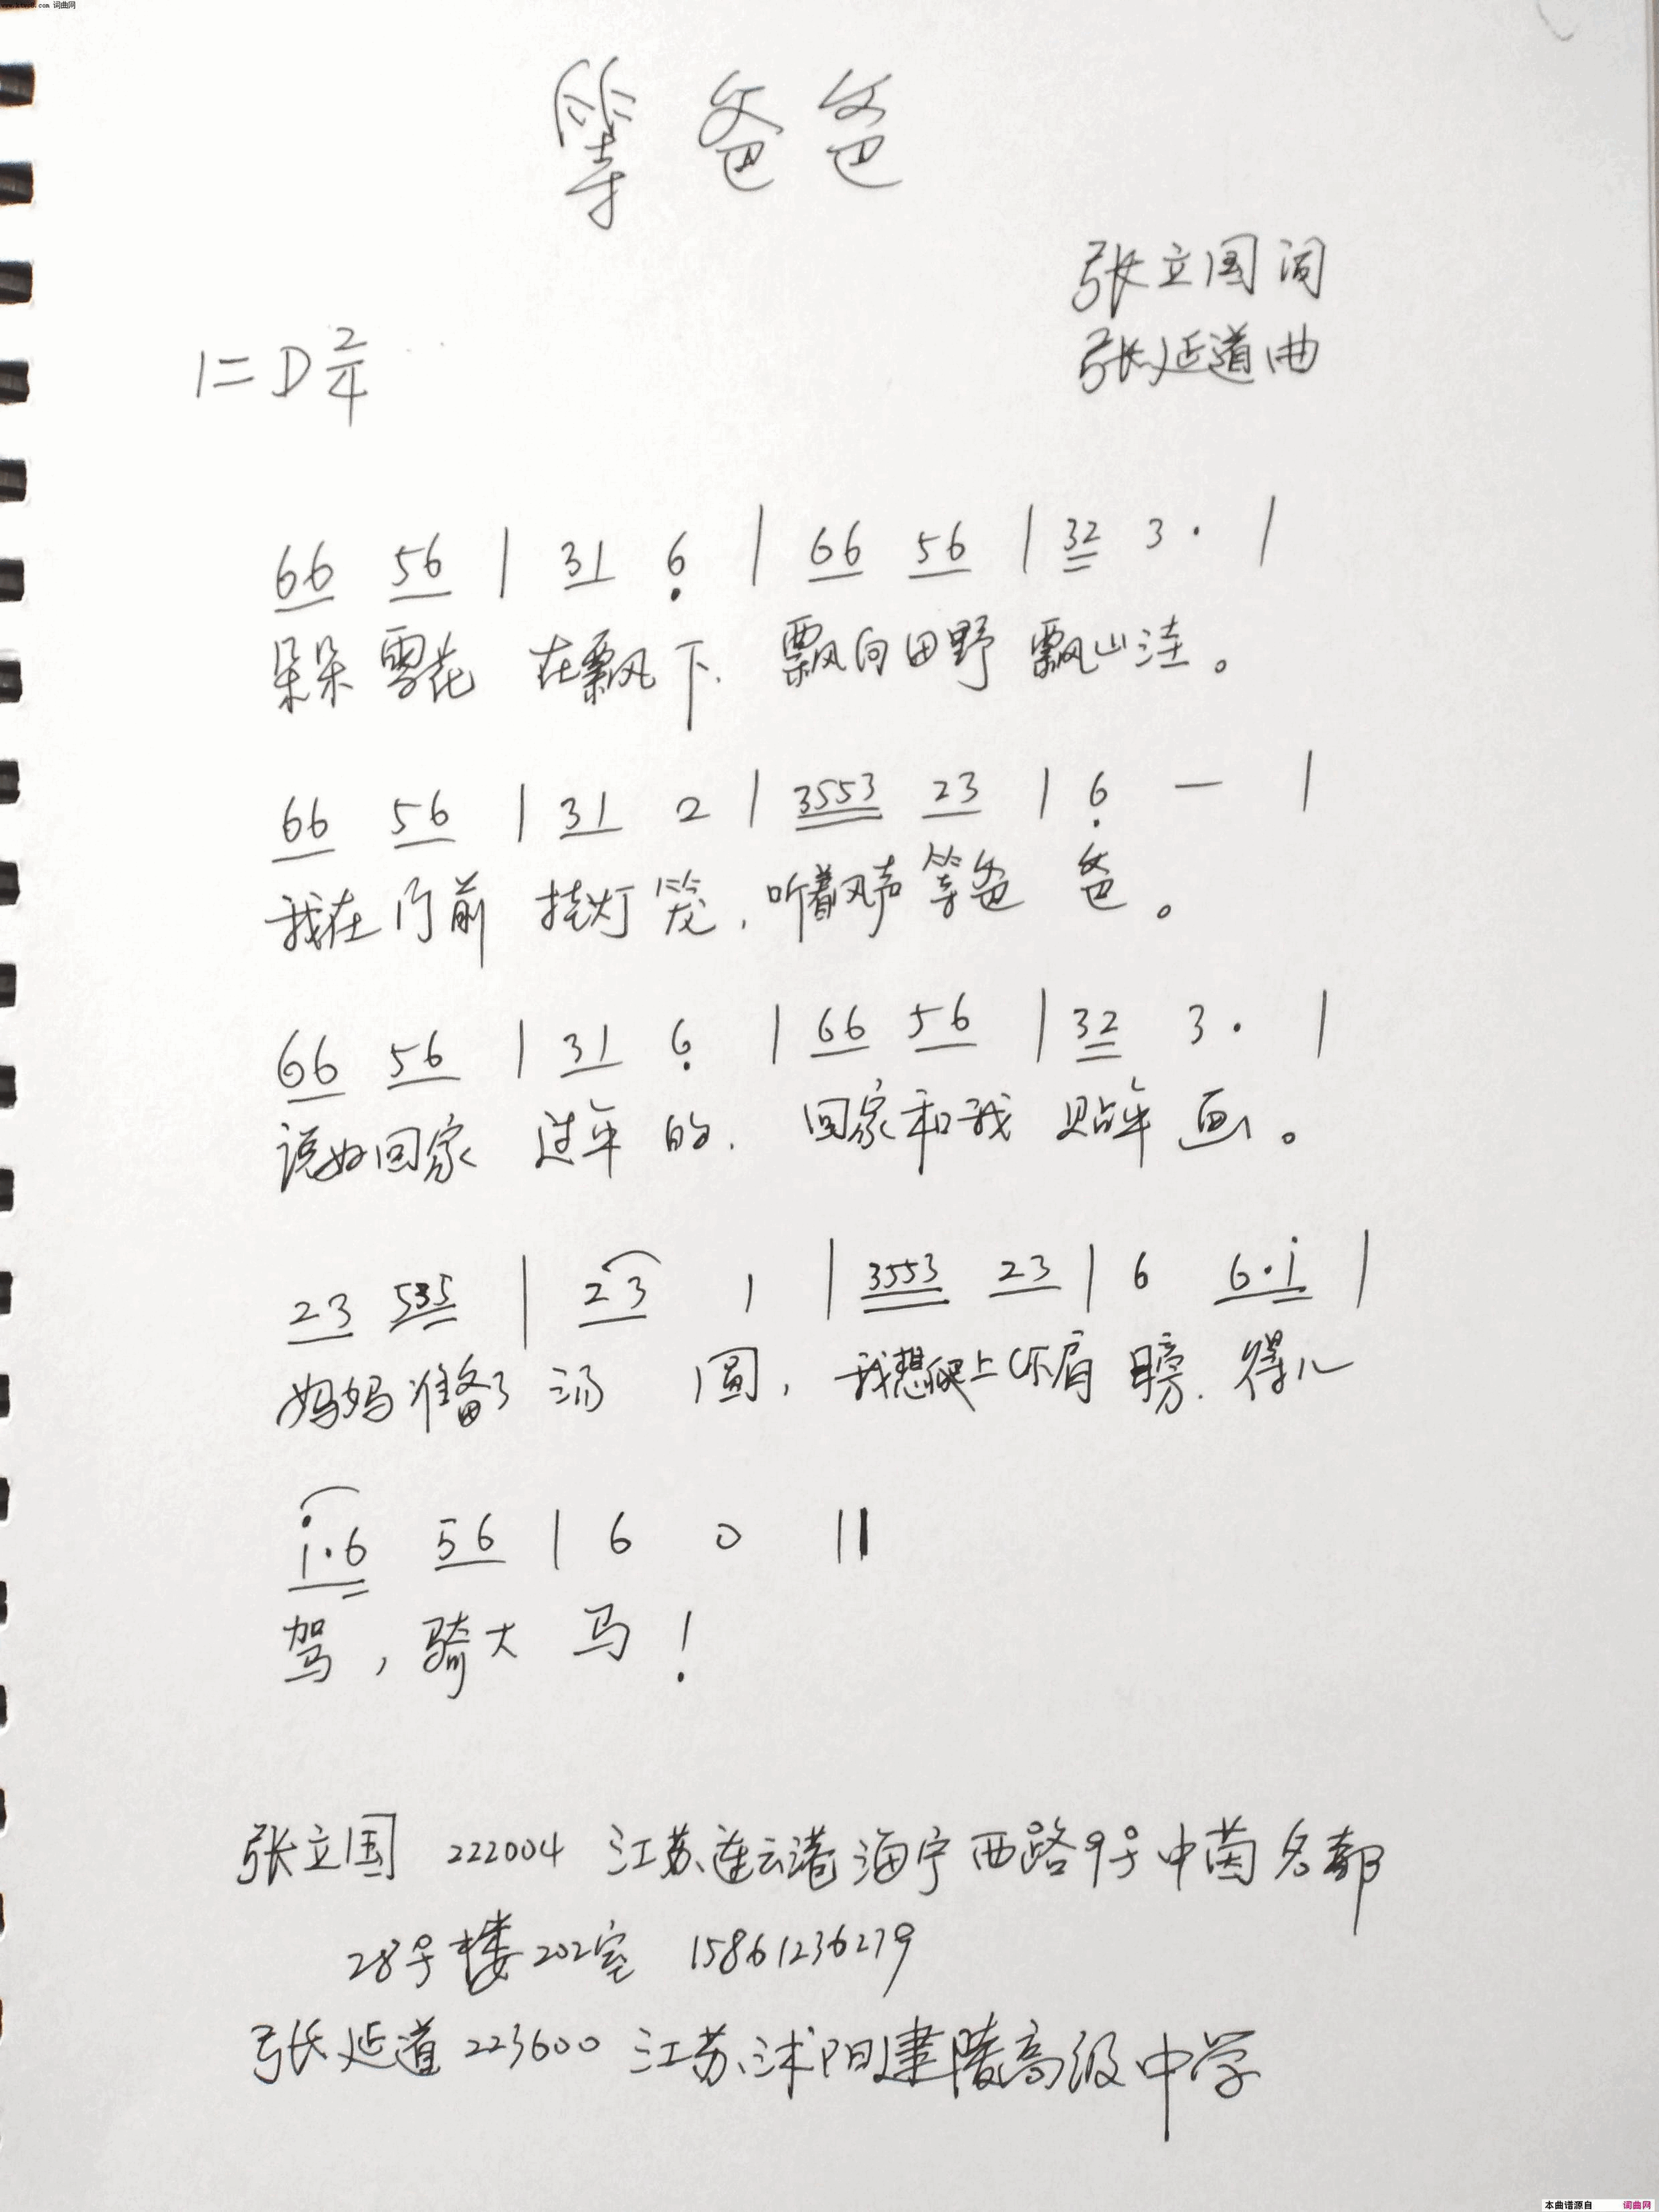 www.ktvc8.com 词曲网
等爸爸
张立国词
1=D 2/4
张延道曲
66 56 | 31 6̣ | 66 56 | 32 3· |
朵朵雪花 在飘下. 飘向田野 飘山洼。
66 56 | 31 2 | 3553 23 | 6̣ — |
我在门前 挂灯笼,听着风声等爸 爸。
66 56 | 31 6̣ | 66 56 | 32 3· |
说好回家 过年 的. 回家和我 贴年 画。
23 535 | 23 1 | 3553 23 | 6 6·i |
妈妈准备了 汤 圆, 我想爬上你肩 膀. 得儿
i·6 56 | 6 0 ||
驾,骑大 马!
张立国 222004 江苏连云港海宁西路9号中茵名都
28号楼202室 15861236279
张延道 223600 江苏沭阳建陵高级中学
本曲谱源自 词曲网